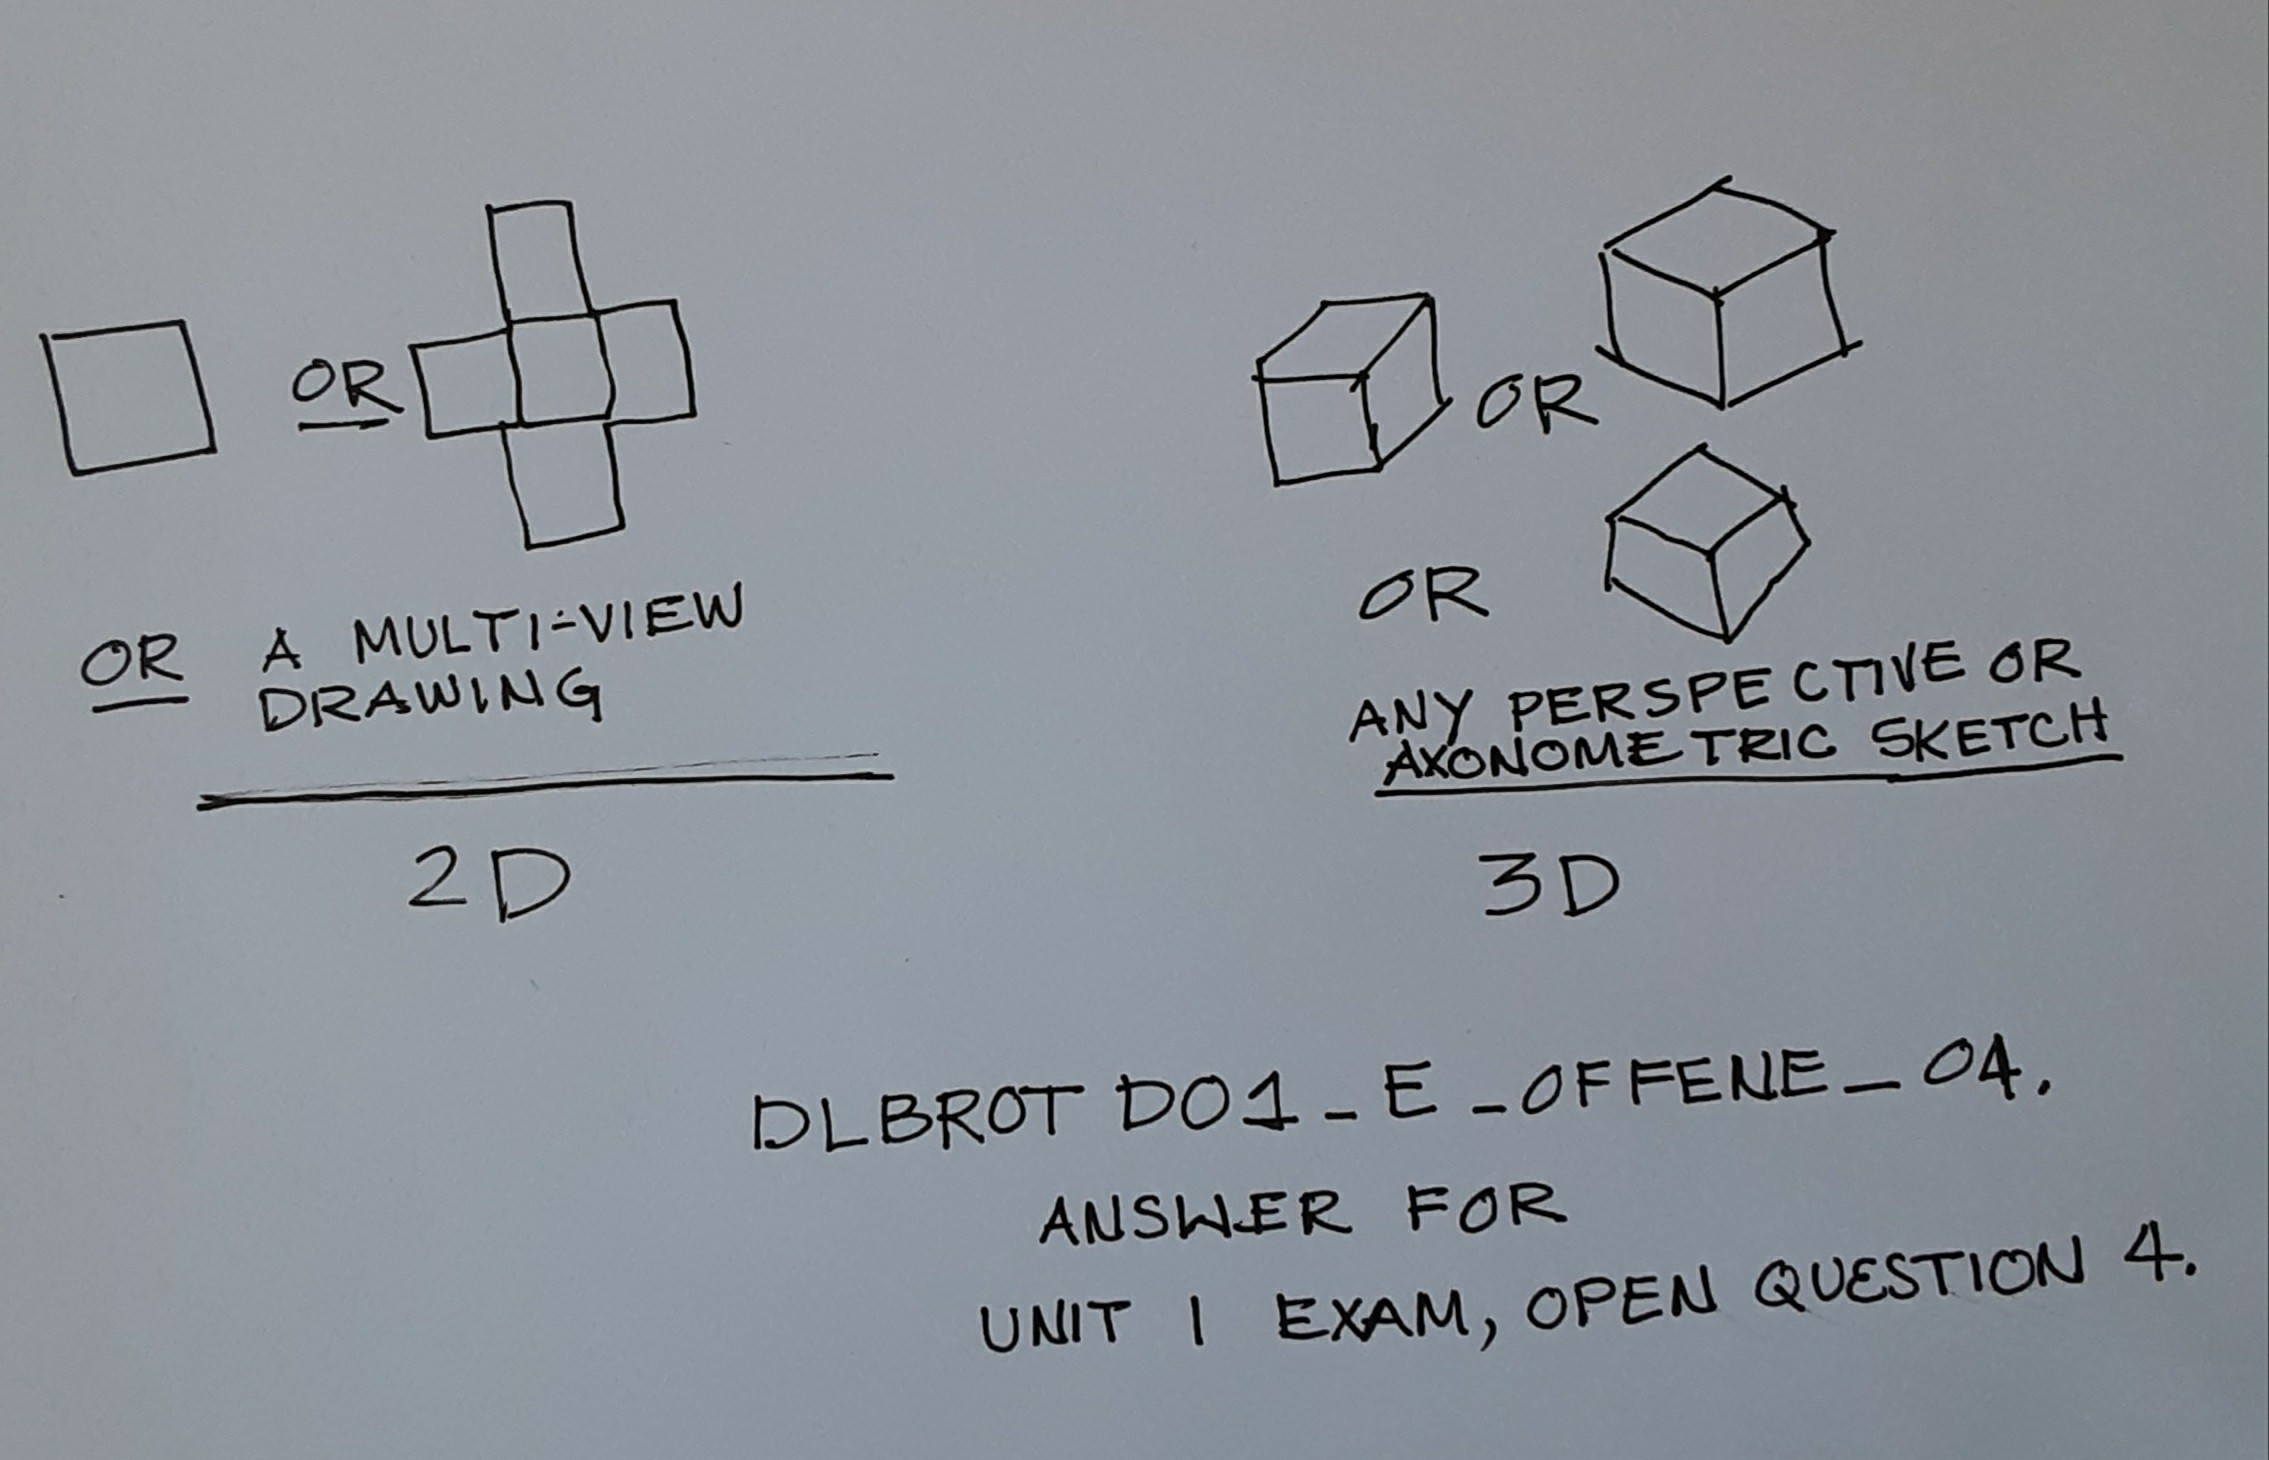 OR
OR A MULTI-VIEW
DRAWING
2D
OR
OR
ANY PERSPECTIVE OR
AXONOMETRIC SKETCH
3D
DLBROTD01_E_OFFENE_04.
ANSWER FOR
UNIT 1 EXAM, OPEN QUESTION 4.